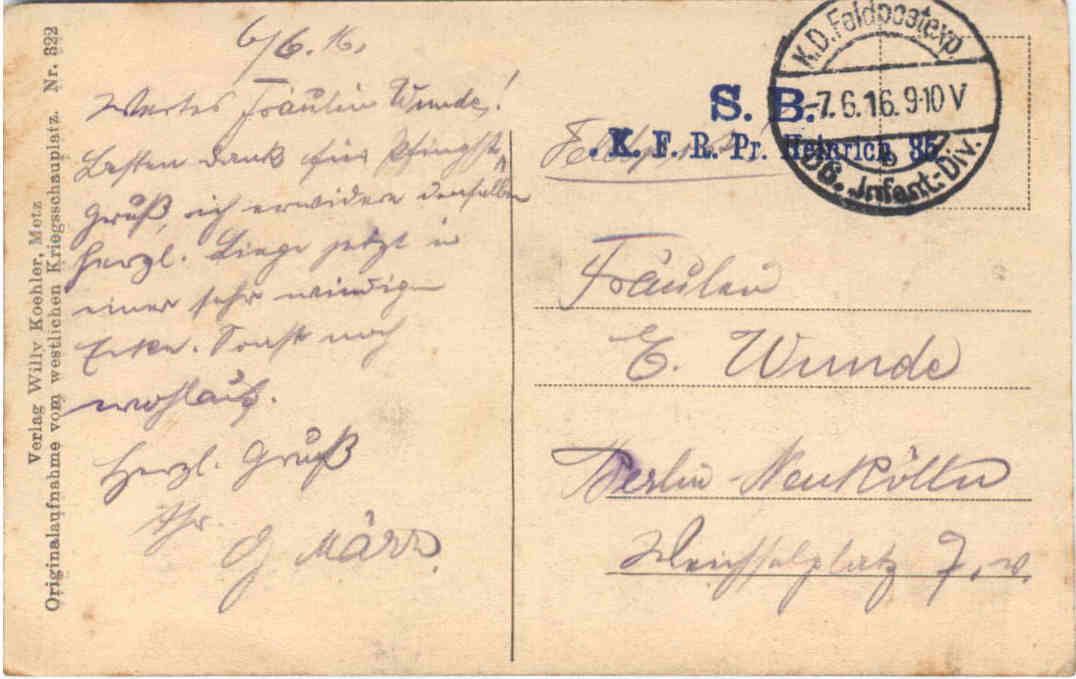 6/6.16.
Wertes Fräulein Wunde!
Besten Dank für Pfingst-
gruß, ich erwidere denselben
herzl. Liege jetzt in
einer sehr windigen
Ecke. Sonst noch
wohlauf.
Herzl. Gruß
Ihr
G März
Verlag Willy Koehler, Metz
Originalaufnahme vom westlichen Kriegsschauplatz. Nr. 322
K.D. Feldpostexp.
-7.6.16. 9-10 V
Infant.-Div.
S. B.
K. F. R. Pr. Heinrich 35.
Fräulein
E. Wunde
Berlin Neukölln
Weichselplatz 7, v.